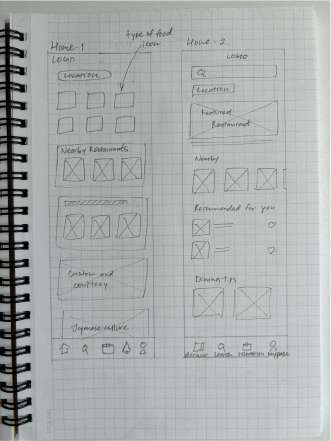 Home-1
type of food
icon
LOGO
Location
Nearby Restaurants
Custom and
courtesy
Japanese culture
Home-2.
LOGO
Location
Featured
Restaurant
Nearby
Recommended for you
Dining tips
discover search reservation mypage